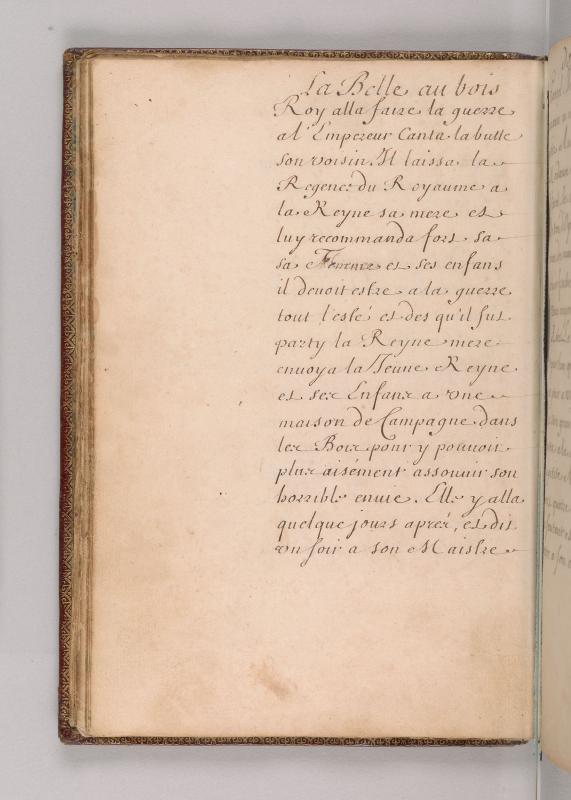 La Belle au bois
Roy alla faire la guerre
a l'Empereur Canta la butte
son voisin Il laissa la
Regence du Royaume a
la Reyne sa mere et
luy recommanda fort sa
sa Femme et ses enfans
il devoit estre a la guerre
tout l'esté et des qu'il fut
party la Reyne mere
envoya la Jeune Reyne
et ses Enfans a une
maison de Campagne dans
les Bois pour y pouvoir
plus aisément assouvir son
horrible envie. Elle y alla
quelque jours aprés, et dit
un soir a son Maistre